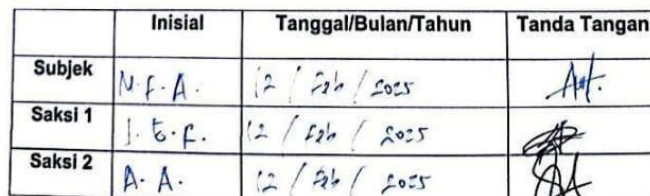 Inisial Tanggal/Bulan/Tahun Tanda Tangan
Subjek N.F.A. 12 / Feb / 2025
Saksi 1 12 / Feb / 2025
Saksi 2 A. A. 12 / Feb / 2025